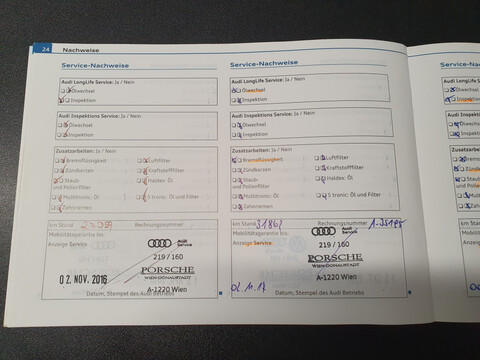 24 Nachweise
Service-Nachweise
Audi LongLife Service: Ja / Nein
Ölwechsel
Inspektion
Audi Inspektions Service: Ja / Nein
Ölwechsel
Inspektion
Zusatzarbeiten: Ja / Nein
Bremsflüssigkeit
Luftfilter
Zündkerzen
Kraftstofffilter
Staub-
und Pollenfilter
Haldex: Öl
Multitronic: Öl
S tronic: Öl und Filter
Zahnriemen
km Stand
Rechnungsnummer
Mobilitätsgarantie bis
Anzeige Service
Audi
Service
219 / 160
PORSCHE
WIEN-DONAUSTADT
A-1220 Wien
02. NOV. 2016
Datum, Stempel des Audi Betriebs
Service-Nachweise
Audi LongLife Service: Ja / Nein
Ölwechsel
Inspektion
Audi Inspektions Service: Ja / Nein
Ölwechsel
Inspektion
Zusatzarbeiten: Ja / Nein
Bremsflüssigkeit
Luftfilter
Zündkerzen
Kraftstofffilter
Staub-
und Pollenfilter
Haldex: Öl
Multitronic: Öl
S tronic: Öl und Filter
Zahnriemen
km Stand
Rechnungsnummer
Mobilitätsgarantie bis
Anzeige Service
Audi
Service
219 / 160
PORSCHE
WIEN-DONAUSTADT
A-1220 Wien
02. 11. 17
Datum, Stempel des Audi Betriebs
Service-Nachweise
Audi LongLife Service
Ölwechsel
Inspektion
Audi Inspektions
Ölwechsel
Inspektion
Zusatzarbeiten: